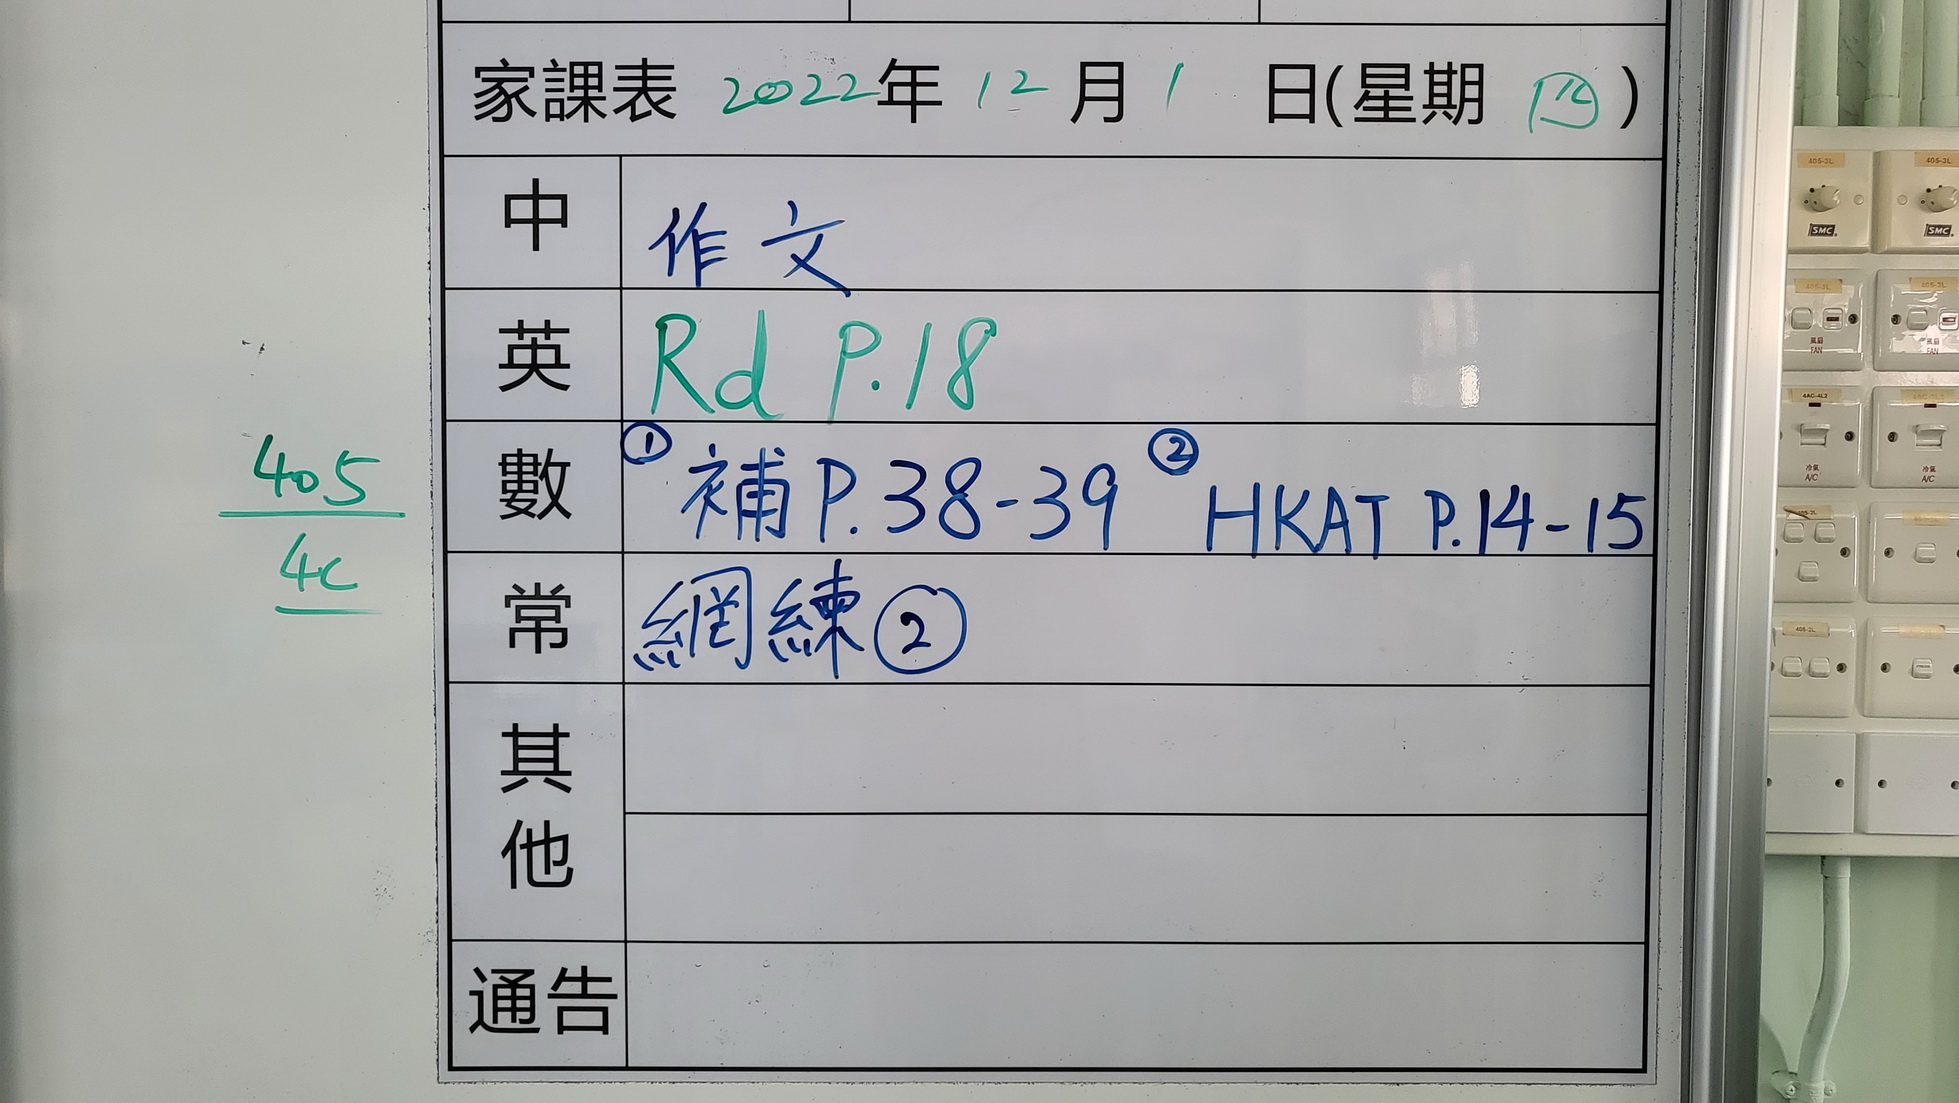 家課表 2022年 12月 1日(星期四)
中 作文
英 Rd P.18
數 ① 補 P.38-39 ② HKAT P.14-15
常 網練②
其他
通告
405
4C
405-3L 405-3L
SMC SMC
405-3L 405-3L
風扇 風扇
FAN FAN
4AC-4L2
冷氣 冷氣
A/C A/C
405-2L